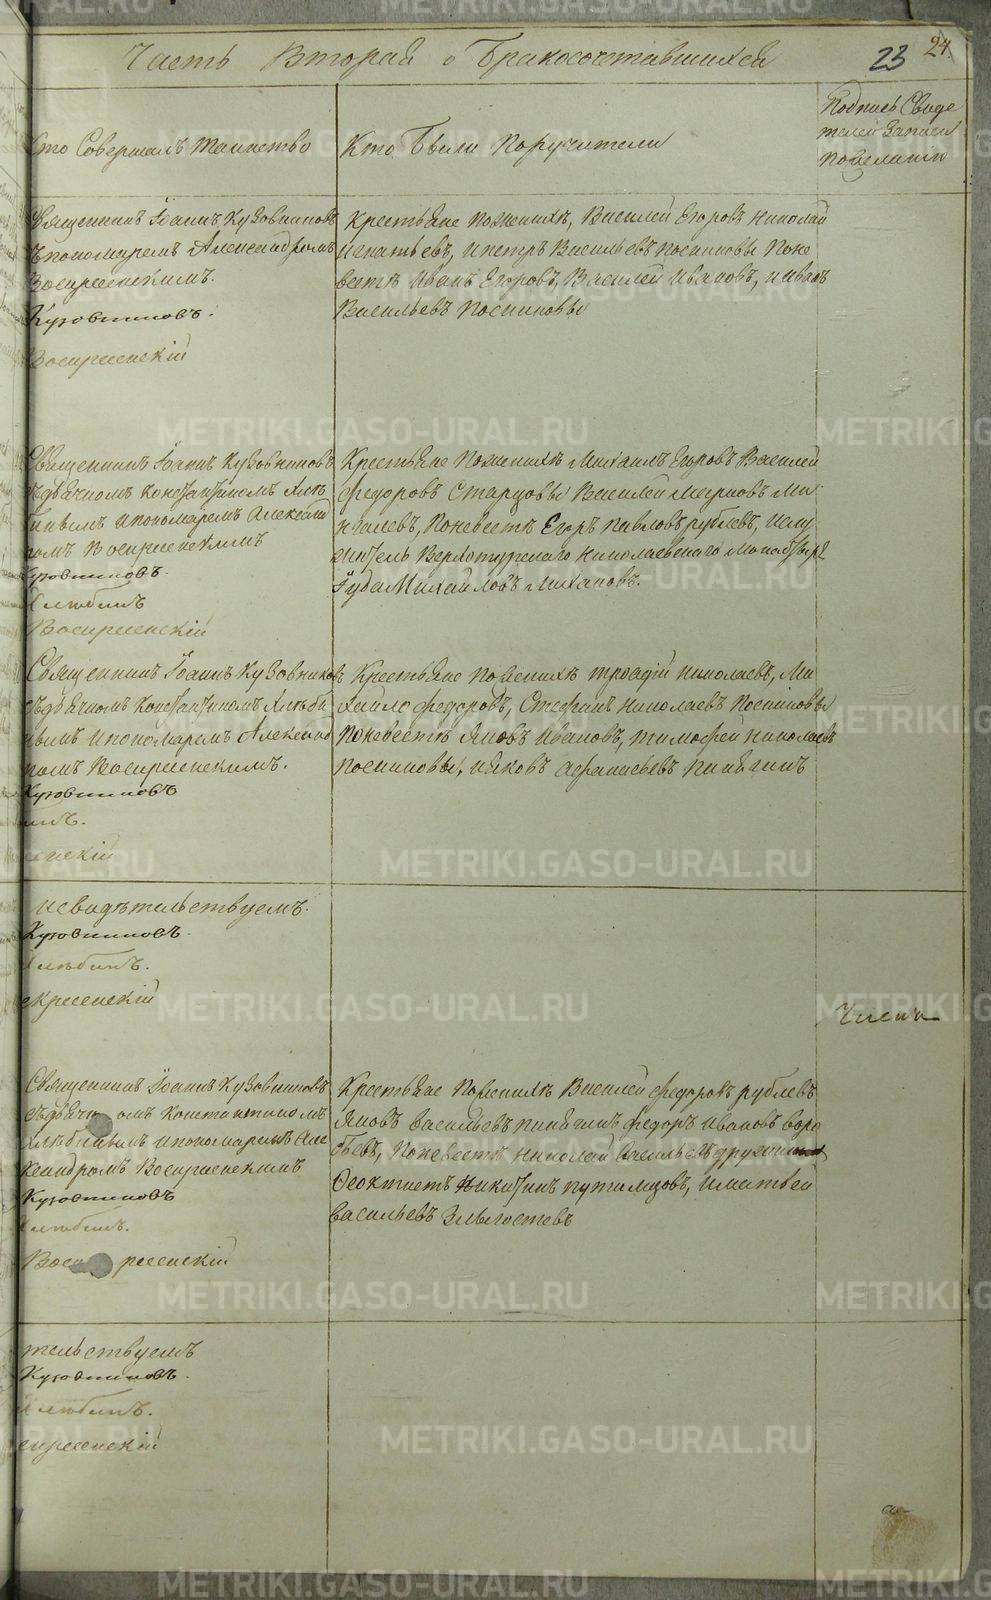 Часть Вторая о Бракосочетавшихся
23 24
Кто Совершалъ Таинство
Кто Были Поручители
Подпись Свиде
телей Записи
по желанию
Священникъ Іоаннъ Кузовниковъ
съ пономаремъ Александромъ
Воскресенскимъ.
Кузовниковъ.
Воскресенскій
Крестьяне По женихѣ, Василей Егоровъ Николай
Игнатьевъ, и Петръ Васильевъ Посниковы По не
вестѣ Иванъ Егоровъ, Василей Ивановъ, и Иванъ
Васильевъ Посниковы
Священникъ Іоаннъ Кузовниковъ
съ дьячкомъ Константиномъ Хлѣ
бинымъ и пономаремъ Александ
ромъ Воскресенскимъ
Кузовниковъ.
Хлѣбинъ
Воскресенскій
Крестьяне По женихѣ Михаилъ Егоровъ Василей
Федоровъ Старцовы Василей
По невестѣ Егоръ Павловъ рублевъ, и слу
житель Верхотурскаго Николаевскаго Монастыря
Іуда Михайловъ
Священникъ Іоаннъ Кузовниковъ
съ дьячкомъ Константиномъ Хлѣби
нымъ и пономаремъ Александ
ромъ Воскресенскимъ.
Кузовниковъ
инъ.
сенскій
Крестьяне По женихѣ Троадій Николаевъ, Ми
хайло Федоровъ, Стефанъ Николаевъ Посниковы
По невестѣ Яковъ Ивановъ, Тимофей Николаевъ
Посниковы, и Яковъ Афанасьевъ Пинягинъ
и свидѣтельствуемъ.
Кузовниковъ.
Хлѣбинъ.
скресенскій
Священникъ Іоаннъ Кузовниковъ
съ дьячкомъ Константиномъ
Хлѣбинымъ и пономаремъ Але
ксандромъ Воскресенскимъ
Кузовниковъ
Хлѣбинъ.
Воскресенскій
Крестьяне По женихѣ Василей Федоровъ рублевъ
Яковъ Васильевъ Пинягинъ Федоръ Ивановъ Воро
бьевъ, По невестѣ Николай Васильевъ
Феоктистъ Никитинъ Путимцовъ, и Матвей
Васильевъ
тельствуемъ
Кузовниковъ.
Хлѣбинъ.
скресенскій
METRIKI.GASO-URAL.RU